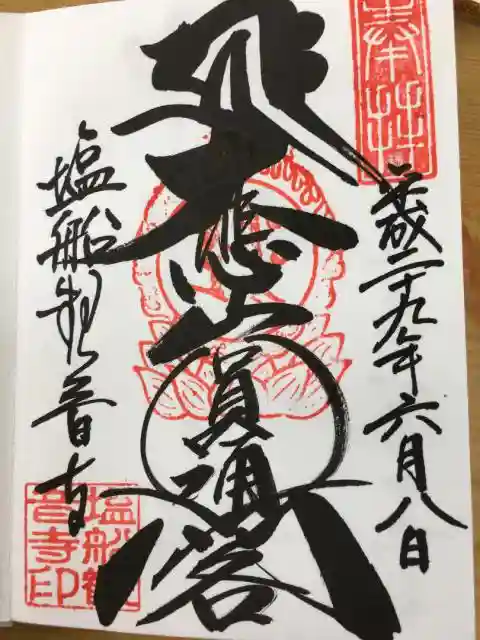 奉拝
平成二十九年六月八日
大悲山圓通閣
塩船観音寺
塩船観
音寺印